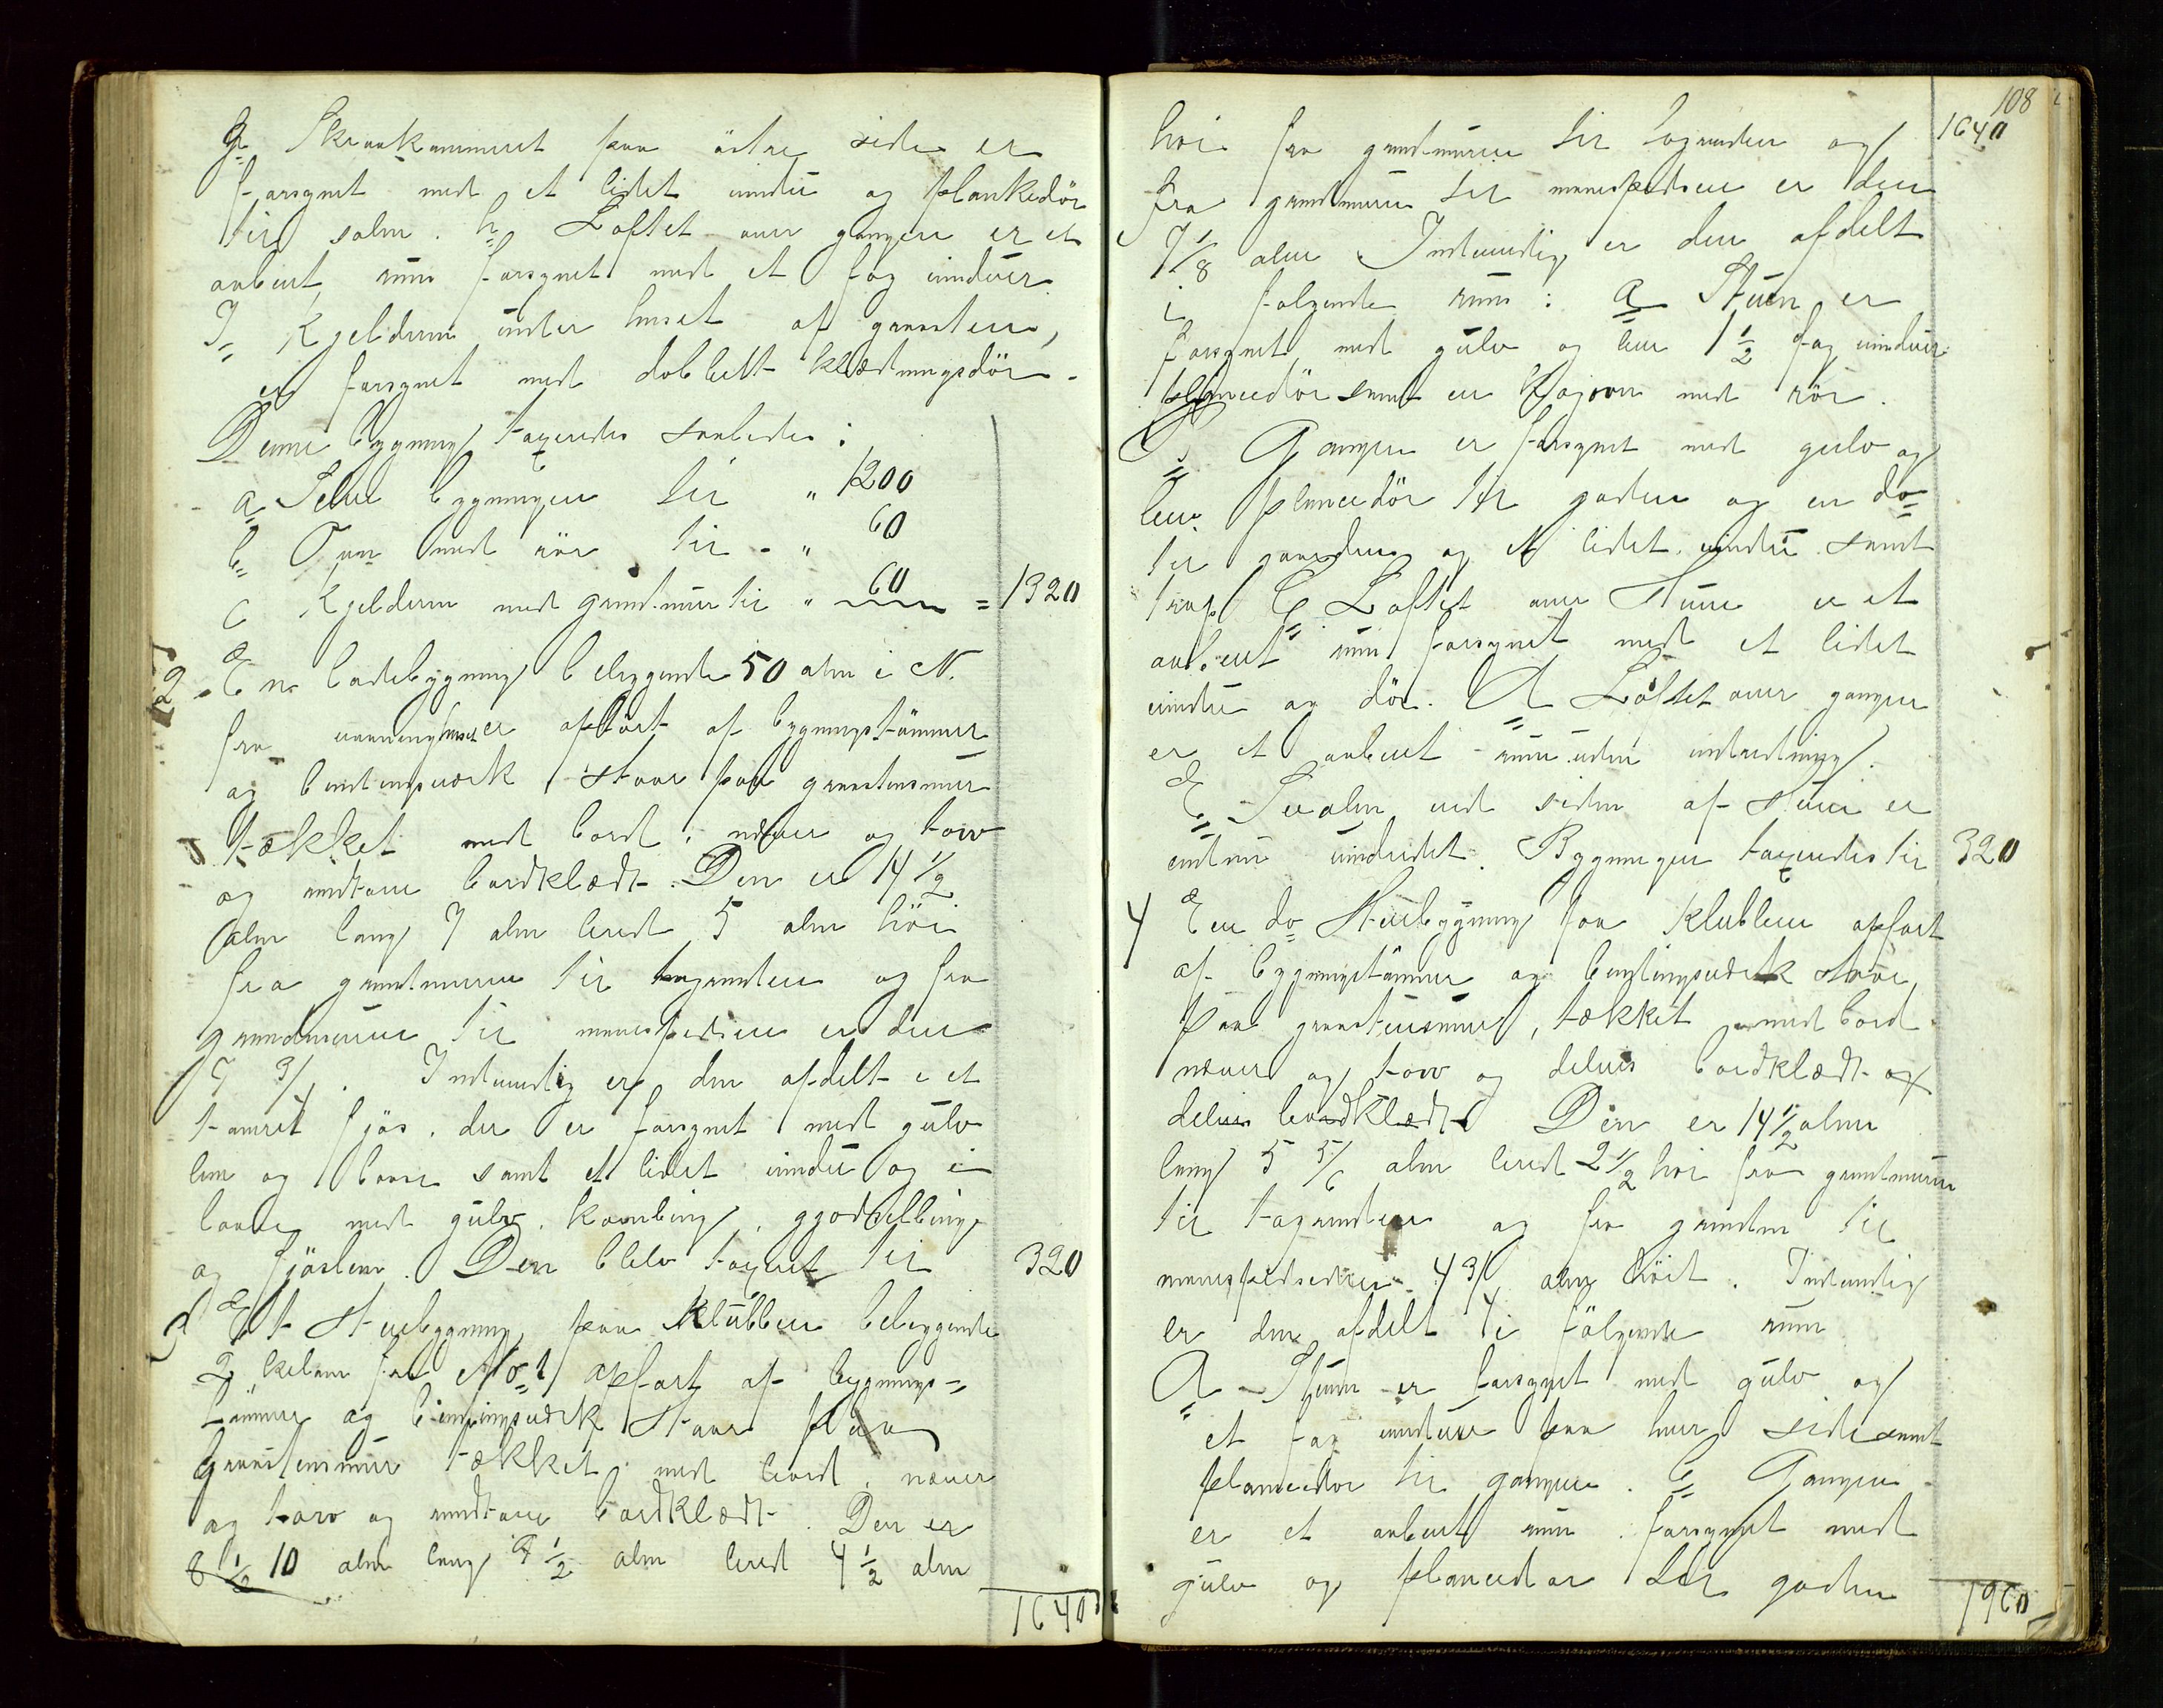 g Skraakammeret paa östre side er
forsynet med et lidet vindu og plankedör
til svalen. h Loftet over gangen er et
aabent rum forsynet med et fag vinduer
I Kjelderen under huset af graasteen,
er forsynet med dobbelt klædningsdör.
Denne bygning taxeredes saaledes:
a Selve bygningen til " 1200
b Ovn med rör til - " 60
c Kjelderen med grundmur til " 60 = 1320
2 En ladebygning beliggende 50 alen i N.
fra vaaningshuset er opfört af bygningstömmer
og bindingsværk staar paa graasteensmur
tækket med bord, næver og torv
og rundtom bordklædt. Den er 14 1/2
alen lang 7 alen bred 5 alen höi
fra grundmuren til tagrenden og fra
grundmuren til mønespidsen er den
7 3/4. Indvendig er den afdelt i et
tømret fjös, der er forsynet med gulv
lem og baase samt et lidet vindu og i
laave med gulv, kornbing, gjødselbing
og fjöslem. Den blev taxeret til 320
3 Et Stuebygning paa Klubben beliggende
2 kilom fra No 1 opført af bygnings-
tömmer og bindingsværk staar paa
graasteensmur tækket med bord, næver
og torv og rundtom bordklædt. Den er
8 1/2 10 alen lang 7 1/2 alen bred 4 1/2 alen
1640
108
1640
höi fra grundmuren til tagrenden og
fra grundmuren til mønespidsen er den
7 1/8 alen Indvendig er den afdelt
i følgende rum: a Stuen er
forsynet med gulv og lem 1 1/2 fag vinduer
planeedör samt en Kogovn med rör.
b Gangen er forsynet med gulv og
lem planeedör til gaden og en do
til gaarden og et lidet vindu samt
trap C Loftet over Stuen er et
aabent rum forsynet med et lidet
vindu og dör. d Loftet over gangen
er et aabent rum uden indredning.
E Svalen ved siden af stuen er
enten uindredet. Bygningen taxeredes til 320
4 En do Stuebygning paa Klubben opført
af bygningstömmer og bindingsværk staar
paa graasteensmur, tækket med bord
næver og torv og delvis bordklædt og
delvis bordklædt Den er 14 1/2 alen
lang 5 5/6 alen bred 2 1/2 høi fra grundmuren
til tagrenden og fra grunden til
mønespidsen 4 3/4 alen höit. Indvendig
er den afdelt i fölgende rum
A Stuen er forsynet med gulv og
et fag vinduer paa hver side samt
planeedør til gangen. b Gangen
er et aabent rum forsynet med
gulv og planeedør til gaden
1960